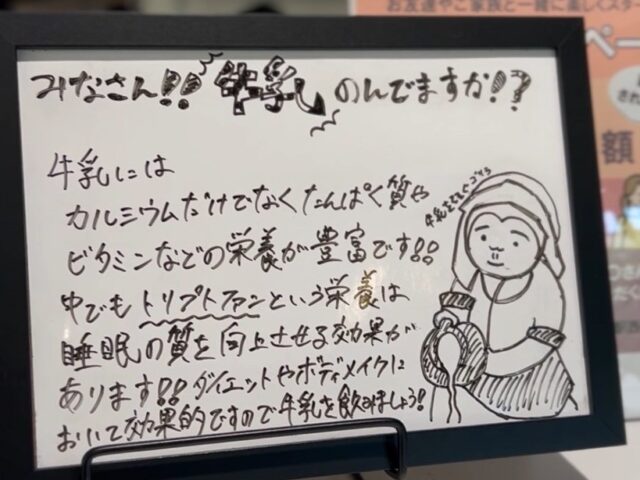 お友達やご家族と一緒に楽しくスター
みなさん!! 牛乳 のんでますか!?
牛乳には
カルシウムだけでなく たんぱく質や
ビタミンなどの栄養が豊富です!!
中でもトリプトファンという栄養は
睡眠の質を向上させる効果が
あります!! ダイエットやボディメイクに
おいて効果的ですので牛乳を飲みましょう!
額